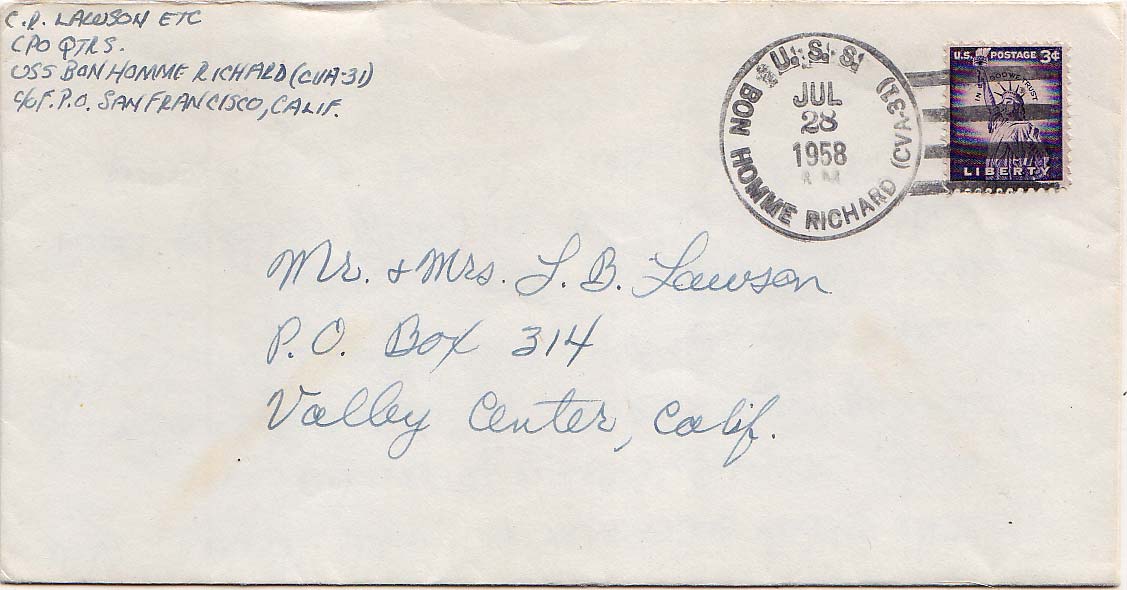 C.R. LAWSON ETC
CPO QTRS.
USS BON HOMME RICHARD (CVA-31)
c/o F.P.O. SAN FRANCISCO, CALIF.
U.S.S.
BON HOMME RICHARD (CVA-31)
JUL
28
1958
A M
U.S. POSTAGE 3¢
IN GOD WE TRUST
LIBERTY
Mr. & Mrs. L. B. Lawson
P.O. Box 314
Valley Center, Calif.